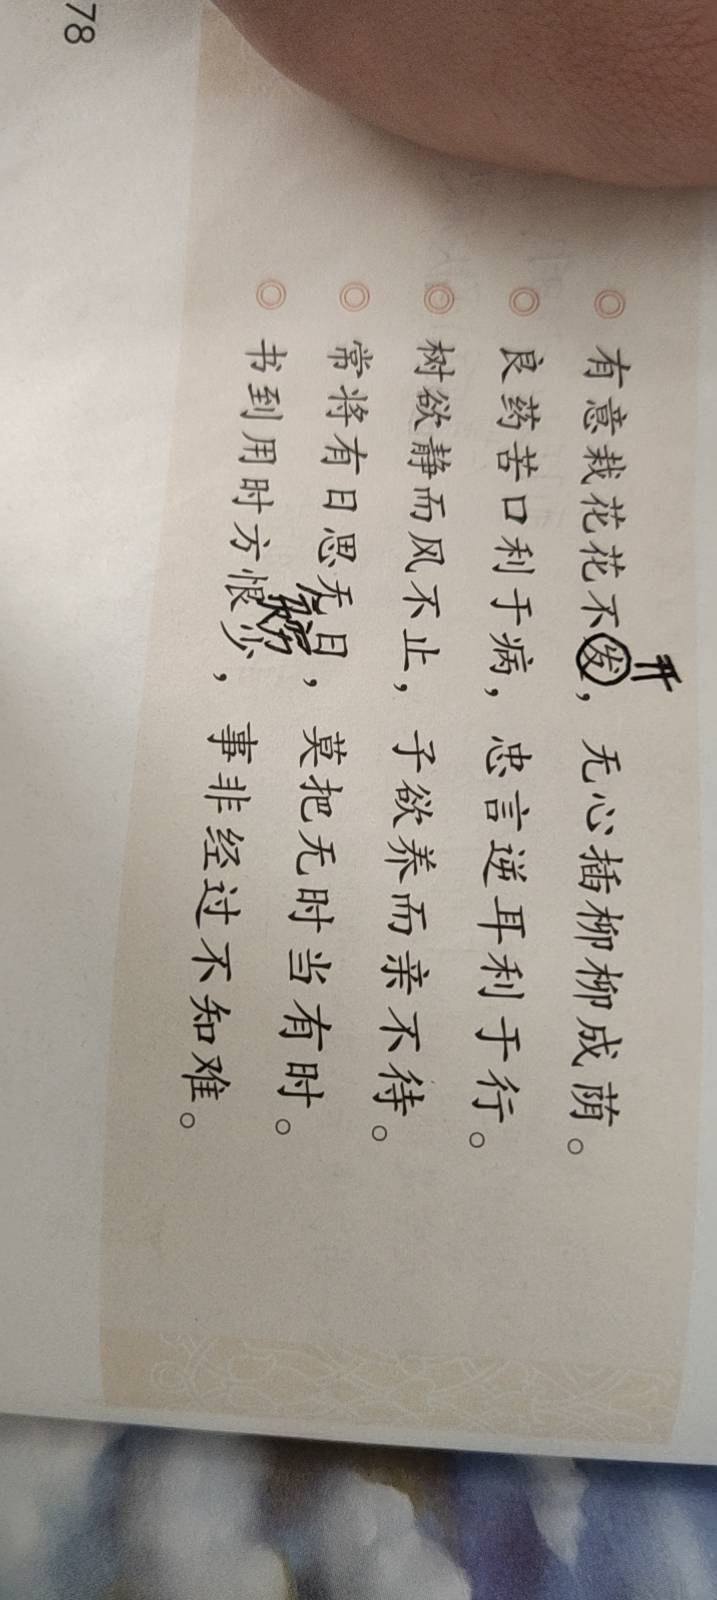 有意栽花花不发，无心插柳柳成荫。
开
良药苦口利于病，忠言逆耳利于行。
树欲静而风不止，子欲养而亲不待。
常将有日思无日，莫把无时当有时。
书到用时方恨少，事非经过不知难。
78